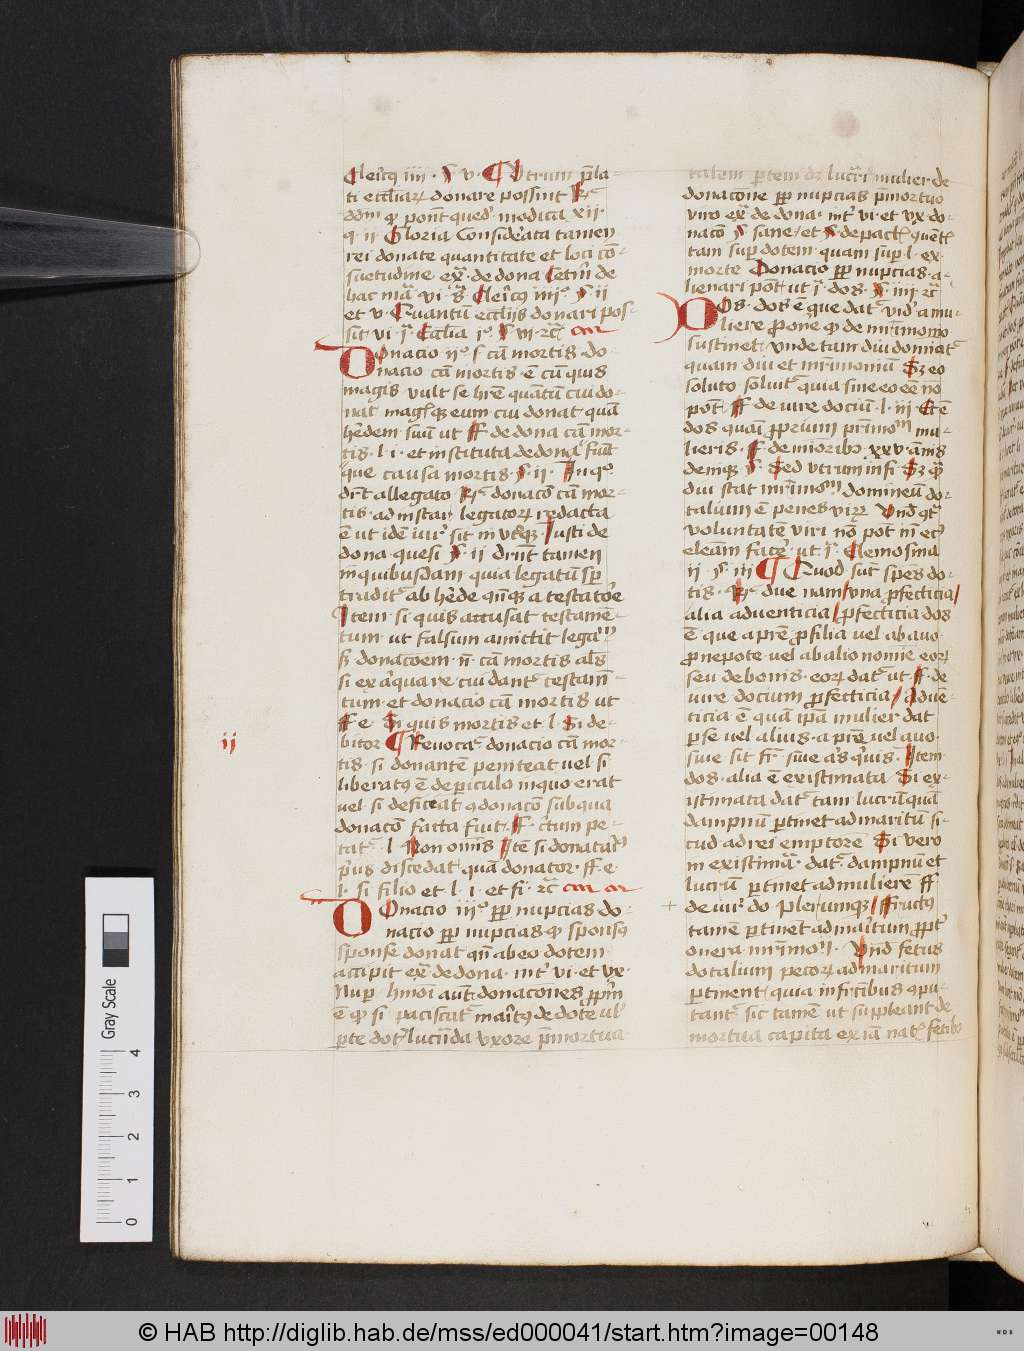 Cleric9 iiii · § v · ¶ Utrum p̄la-
ti eccl̄iarꝝ donare possint R̃
ddm̄ ꝙ pōnt qued' modica xii ·
q · ii Gloria Considerata tamen
rei donate quantitate et loci cō-
suetudine · ex̄ · de dona Cetm̄ de
hac mā vi · s̄ Cleric9 iiij° · § · ii
et v · Quantū eccl̄ijs donari pos-
sit vi ·
Donacio ii° f cā mortis · do-
nacio cā mortis · ē cū quis
magis vult se h̄re quātū cui do-
nat magisqꝫ eum cui donat quā
h̄edem suū ut ff · de dona cā mor-
tis · l · i · et instituta de dona fiūt
que causa mortis · § · ii · In q°
dr̄t allegato R̃ donacō cā mor-
tis · ad instar legatorꝝ redacta
ē ut idē iur̄ sit in utroqꝫ Iusti de
dona · quesi § · ii drn̄t tamen
in quibusdam quia legatū sp̄
tradit' ab h̄ede qn̄qꝫ a testatoē
Item si quis accusat testamē-
tum · ut falsum amictit legatū
sꝫ donacoem · n̄ · cā mortis al's
si ex aꝗuare cui dant' testam̄-
tum · et donacio cā mortis ut
ff e · Si quis mortis et l · Si de-
ii
bitor ¶ Revocat' donacio cā mor-
tis · si donantē peniteat vel si
liberat9 ē de periculo in quo erat
vel · si deficeat ꝯdonacō sub qua
donacō facta fuit · ff · c̄tum pe-
tat' · l · Non omīs Itē si donatari9
pri9 discedat quā donator · ff · e ·
l · si filio et l · i · et fi ·
Donacio iii° ꝓpt' nupcias do-
nacio ꝓpt' nupcias ꝙ spons9
sponse donat qn̄ ab eo dotem
accipit ex̄ · de dona · int' vi · et vx̄ ·
Nup · hm̄oi aut' donacoēs
ē ꝙ si paciscat' marit9 de dote vl'
ꝑte dot' lucrīda vxore p̄mortua
talem ꝑtem dꝫ lucrari mulier de
donacōne ꝓpt' nupcias p̄mortuo
viro ex̄ · de dona · int' vi · et vx̄ do-
nacō § sane / et § · de pact' quēt'
tam sup dotem quam sup · l · ex
morte Donacio ꝓpt' nupcias · a-
lienari pōt ut j · dos · § · iiij
Dos · dos ē que dat' vid' a mu-
liere ꝓ one ꝙ de mr̄imonio
sustinet / unde tam diu dominat'
quam diu et mr̄imonium Sꝫ eo
soluto soluit' quia sine eo eē nō
pōt · ff · de iure dociū · l · iii · Et ē
dos quasi ꝓprium patrimoniū mu-
lieris · ff · de miōribꝫ · xxv · annis
deniqꝫ § · Sed utrum infi · Sꝫ q̄
diu stat mr̄imoniū dominiū do-
talium ē penes virꝝ Und' ꝯt'
voluntatē viri nō pōt
eleām face' ut j · Elemosina
ii · § · iii ¶ Quod sūt spēs do-
tis · R̃ due nam / una ꝓfecticia /
alia adventicia / ꝓfecticia dos
ē que a pr̄e ꝓ filia vel ab avo
ꝓ nepote vel ab alio nomie eorꝝ
seu de bonis · eorꝝ dat' ut ff · de
iure docium ꝓfecticia / Advē-
ticia ē quā ip̄a mulier dat
p se vel alius · a pr̄e vel avo ·
sive sit fr̄ · sive a's quis · Item
dos · alia ē existimata Si ex-
istimata dat' tam lucrū quā
dampnū ꝑtinet ad maritū si-
cud ad rei emptorē Si vero
in existimata dat' dampnū et
lucrū ꝑtinet ad mulierē ff
de iur' do · Plerumqꝫ / ffruct9
tamē ꝑtinēt ad maritum ꝓpt'
onera mr̄imonii · Und' fetus
dotalium pecorꝝ ad maritum
ꝑtinent / quia in fructibus ꝯpu-
tant' sic tamē ut suppleant de
mortua capita ex iā nat' fetibꝫ
Gray Scale
4
3
2
1
0
© HAB http://diglib.hab.de/mss/ed000041/start.htm?image=00148